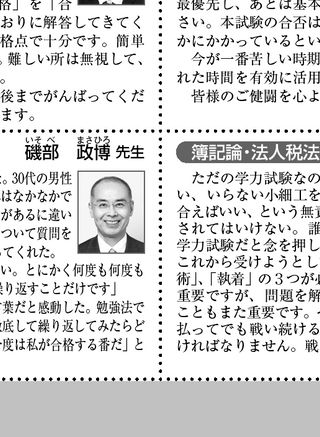 格」を「合
おりに解答してきてく
格点で十分です。簡単
。難しい所は無視して、
。
後までがんばってくだ
ます。
最優先し、あとは基本
さい。本試験の合否は
かにかかっているとい
今が一番苦しい時期
れた時間を有効に活用
皆様のご健闘を心よ
いそべ まさひろ
磯部 政博 先生
た。30代の男性
はなかなかで
があるに違い
ついて質問を
ってくれた。
い。とにかく何度も何度も
繰り返すことだけです」
言葉だと感動した。勉強法で
徹底して繰り返してみたらど
今度は私が合格する番だ」と
簿記論・法人税法
ただの学力試験なの
い、いらない小細工を
合えばいい、という無責
されてはいけない。誰
学力試験だと念を押し
これから受けようとし
術」、「執着」の３つが必
重要ですが、問題を解
こともまた重要です。
払ってでも戦い続ける
ければなりません。戦